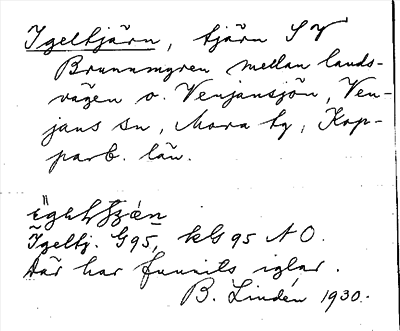 Igeltjärn, tjärn S V
Brunnmyren mellan lands-
vägen o. Venjansjön, Ven-
jans sn, Mora tg, Kop-
parb. län.
Igeltj. G95, kG 95 N O.
Där har funnits iglar.
B. Lindén 1930.